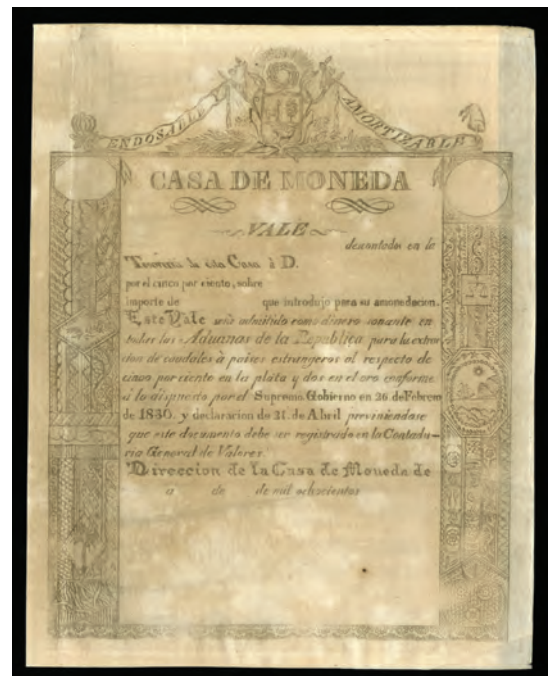 ENDOSABLE AMORTIZABLE
CASA DE MONEDA
VALE
descontados en la
Tesoreria de esta Casa à D.
por el cinco por ciento, sobre
importe de que introdujo para su amonedacion.
Este Vale será admitido como dinero sonante en
todas las Aduanas de la Republica para la extrac
cion de caudales à paises estrangeros al respecto de
cinco por ciento en la plata y dos en el oro conforme
á lo dispuesto por el Supremo Gobierno en 26 de Febrero
de 1830. y declaracion de 21. de Abril previniendose
que este documento debe ser registrado en la Contadu-
ria General de Valores.
Direccion de la Casa de Moneda de
a de de mil ochocientos